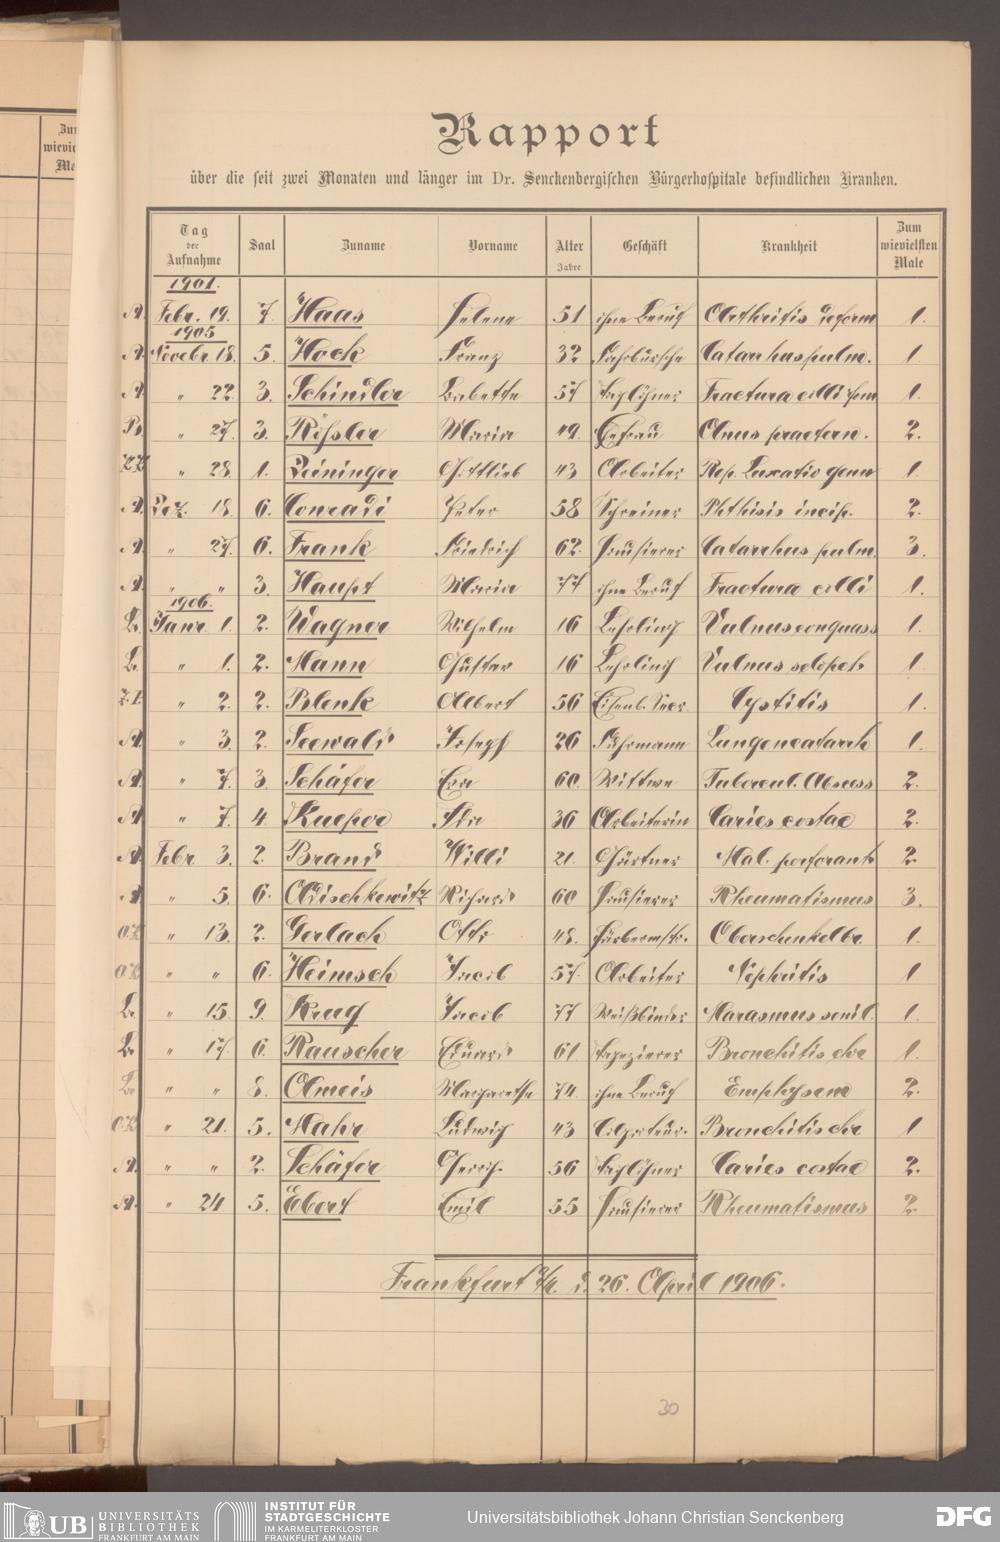 Zum
wieviel
Ma
Rapport
über die seit zwei Monaten und länger im Dr. Senckenbergischen Bürgerhospitale befindlichen Kranken.
Tag der Aufnahme Saal Zuname Vorname Alter Jahre Geschäft Krankheit Zum wievielsten Male
1901.
A. Febr. 19. 7. Haas Helene 51 ohne Beruf Arthritis deform 1.
1905
A. Novebr. 18. 5. Hock Franz 32 Fahrbursche Catarrhus pulm. 1.
A. " 22. 3. Schindler Babette 57 Taglöhner Fractura colli fem 1.
B. " 27. 3. Rössler Maria 49. Ehefrau Anus praetern. 2.
" 28. 1. Leininger Gottlieb 43 Arbeiter Rep. Luxatio genu 1
A. Dez. 18. 6. Conradi Peter 58 Schreiner Phthisis incip. 2.
A. " 27. 6. Frank Friedrich 62. Hausierer Catarrhus pulm. 3.
A. " " 3. Haupt Maria 77 ohne Beruf Fractura colli 1.
1906.
L. Janr. 1. 2. Wagner Wilhelm 16 Lehrling Vulnus conquass 1.
L. " 1. 2. Mann Gustav 16 Lehrling Vulnus sclopet. 1
" 2. 2. Blenk Albert 56 Eisenb. Secr. Cystitis 1.
A. " 3. 2. Seewald Joseph 26 Fuhrmann Lungencatarrh 1.
A. " 7. 3. Schäfer Eva 60. Wittwe Tubercul. Abscess 2.
A. " 7. 4. Kueper Ida 36 Arbeiterin Caries costae 2.
A. Febr. 3. 2. Brand Willi 21. Gärtner Mal. perforant. 2.
A. " 5. 6. Adischkewitz Richard 60 Hausierer Rheumatismus 3.
" 13. 2. Gerlach Otto 48. Färbermstr. Oberschenkelbr. 1.
" " 6. Heimsch Jacob 57. Arbeiter Nephritis 1
L. " 15. 9. Krug Jacob 77 Weißbinder Marasmus senil. 1.
L. " 17. 6. Rauscher Eduard 61. Tapezierer Bronchitis chr 1.
L. " " 8. Olmeis Margarethe 74. ohne Beruf Emphysem 2.
" 21. 5. Mahr Ludwig 43 Colporteur. Bronchitis chr 1
A. " " 2. Schäfer Georg. 56 Taglöhner Caries costae 2.
A. " 24 5. Ebert Emil 55 Hausierer Rheumatismus 2.
Frankfurt a/M. d. 26. April 1906.
30
UB UNIVERSITÄTS BIBLIOTHEK FRANKFURT AM MAIN
INSTITUT FÜR STADTGESCHICHTE IM KARMELITERKLOSTER FRANKFURT AM MAIN
Universitätsbibliothek Johann Christian Senckenberg
DFG